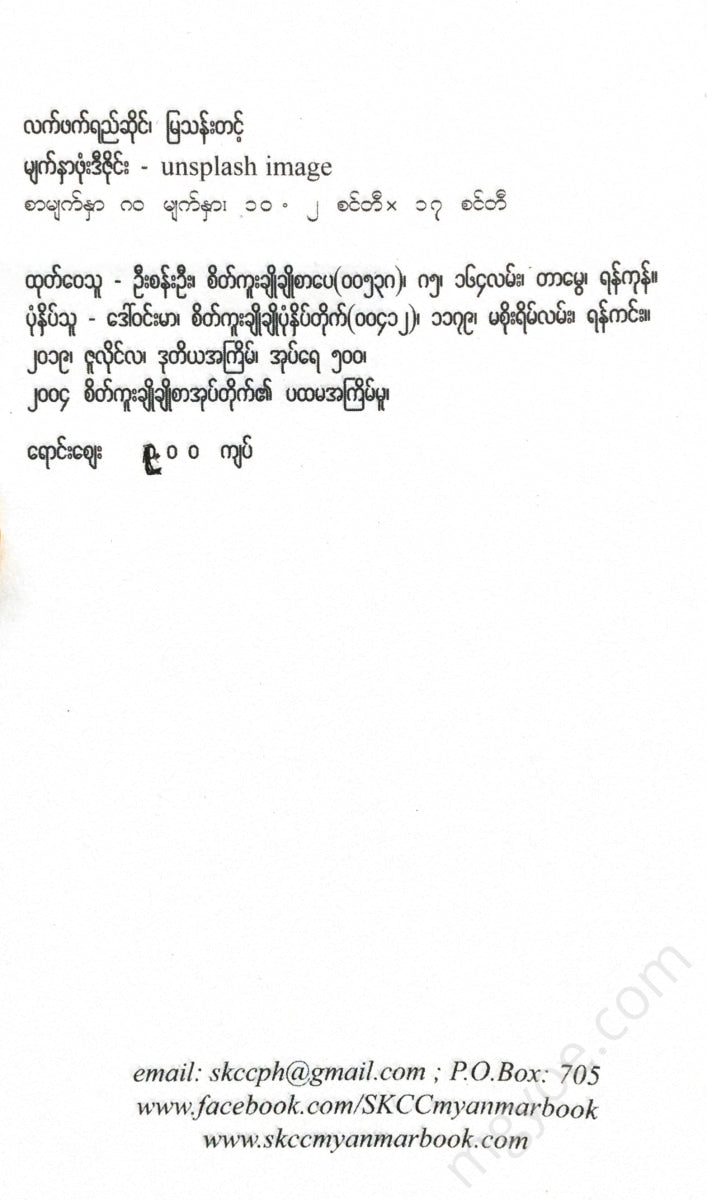 လက်ဖက်ရည်ဆိုင်၊ မြသန်းတင့်
မျက်နှာဖုံးဒီဇိုင်း - unsplash image
စာမျက်နှာ ၈၀ မျက်နှာ၊ ၁၀ . ၂ စင်တီ× ၁၇ စင်တီ
ထုတ်ဝေသူ - ဦးစန်းဦး၊ စိတ်ကူးချိုချိုစာပေ(၀၀၅၃၈)၊ ၈၅၊ ၁၆၄လမ်း၊ တာမွေ၊ ရန်ကုန်။
ပုံနှိပ်သူ - ဒေါ်ဝင်းမာ၊ စိတ်ကူးချိုချိုပုံနှိပ်တိုက်(၀၀၄၁၂)၊ ၁၁၇၉၊ မစိုးရိမ်လမ်း၊ ရန်ကင်း။
၂၀၁၉၊ ဇူလိုင်လ၊ ဒုတိယအကြိမ်၊ အုပ်ရေ ၅၀၀၊
၂၀၀၄ စိတ်ကူးချိုချိုစာအုပ်တိုက်၏ ပထမအကြိမ်မူ၊
ရောင်းဈေး ၀ ၀ ကျပ်
email: skccph@gmail.com ; P.O.Box: 705
www.facebook.com/SKCCmyanmarbook
www.skccmyanmarbook.com
mgyoe.com